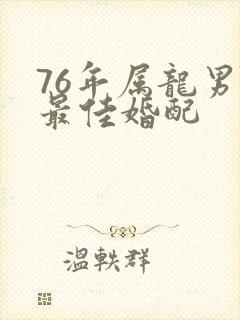 76年属龍男
最佳婚配
溫軼群